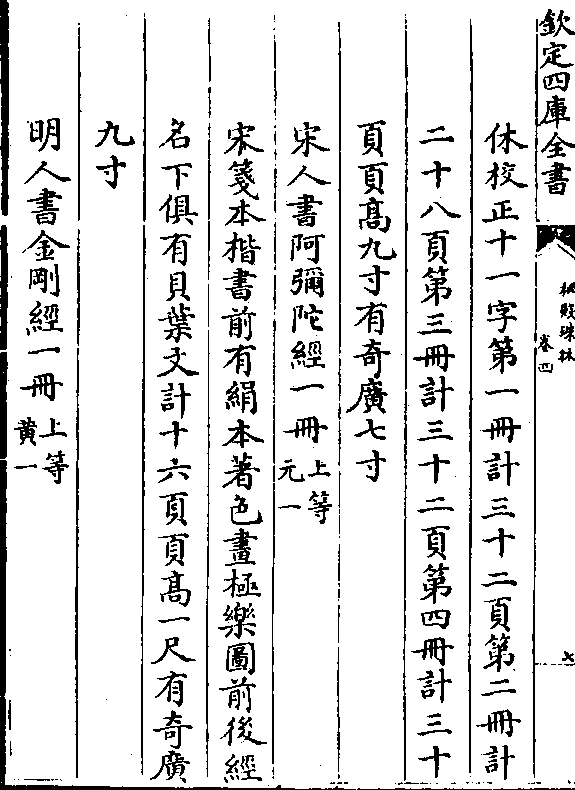 欽定四庫全書
秘殿珠林
卷四
七
休校正十一字第一冊計三十二頁第二冊計
二十八頁第三冊計三十二頁第四冊計三十
頁頁髙九寸有奇廣七寸
宋人書阿彌陀經一冊上等元一
宋箋本楷書前有絹本著色畫極樂圖前後經
名下俱有貝葉文計十六頁頁髙一尺有奇廣
九寸
明人書金剛經一冊上等黄一